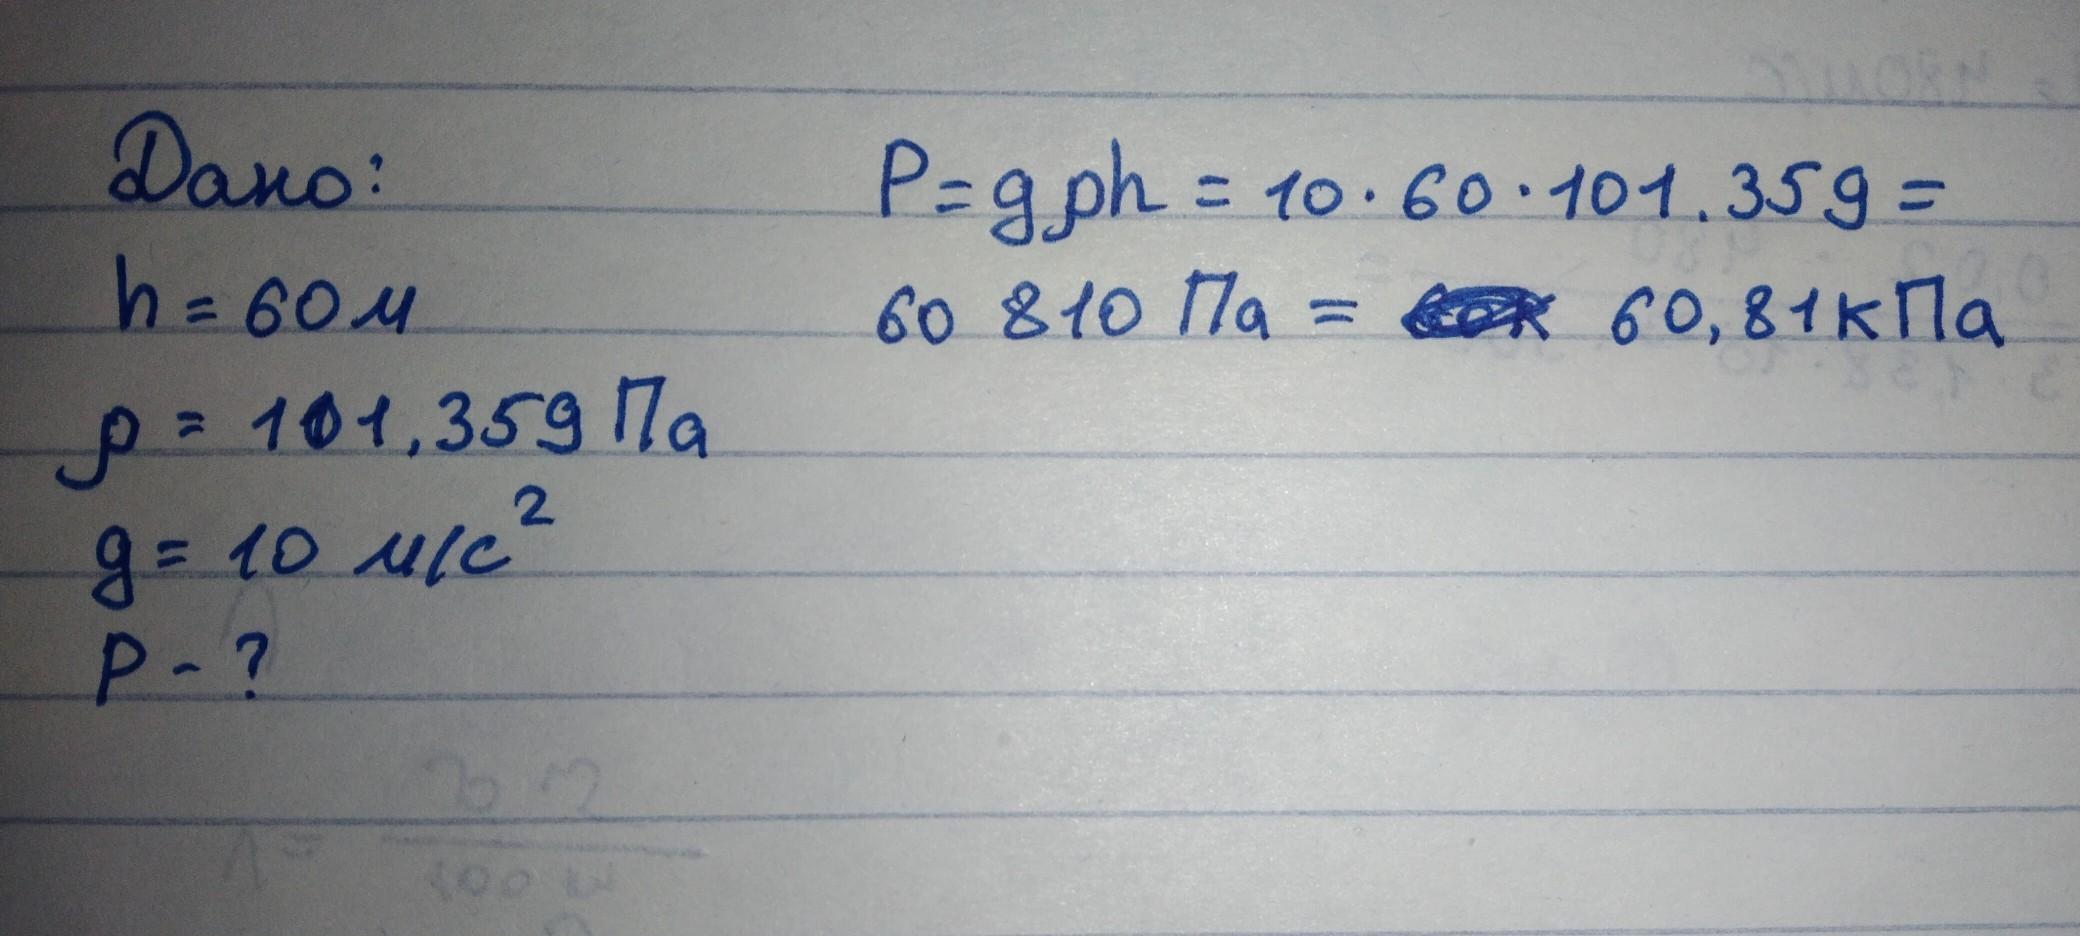 Дано:
h = 60 м
ρ = 101,359 Па
g = 10 м/с²
P - ?
P = gρh = 10 · 60 · 101.359 =
60 810 Па = 60,81 кПа